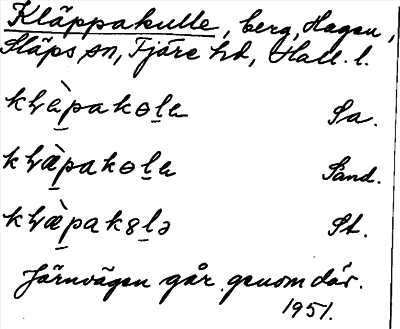 Kläppakulle, berg, Hagen,
Släps sn, Fjäre hd, Hall. l.
kⱶæ̀pakola Sa.
kⱶæ̀pakola Sand.
kⱶæ̀pakɞlə St.
Järnvägen går genom där.
1951.